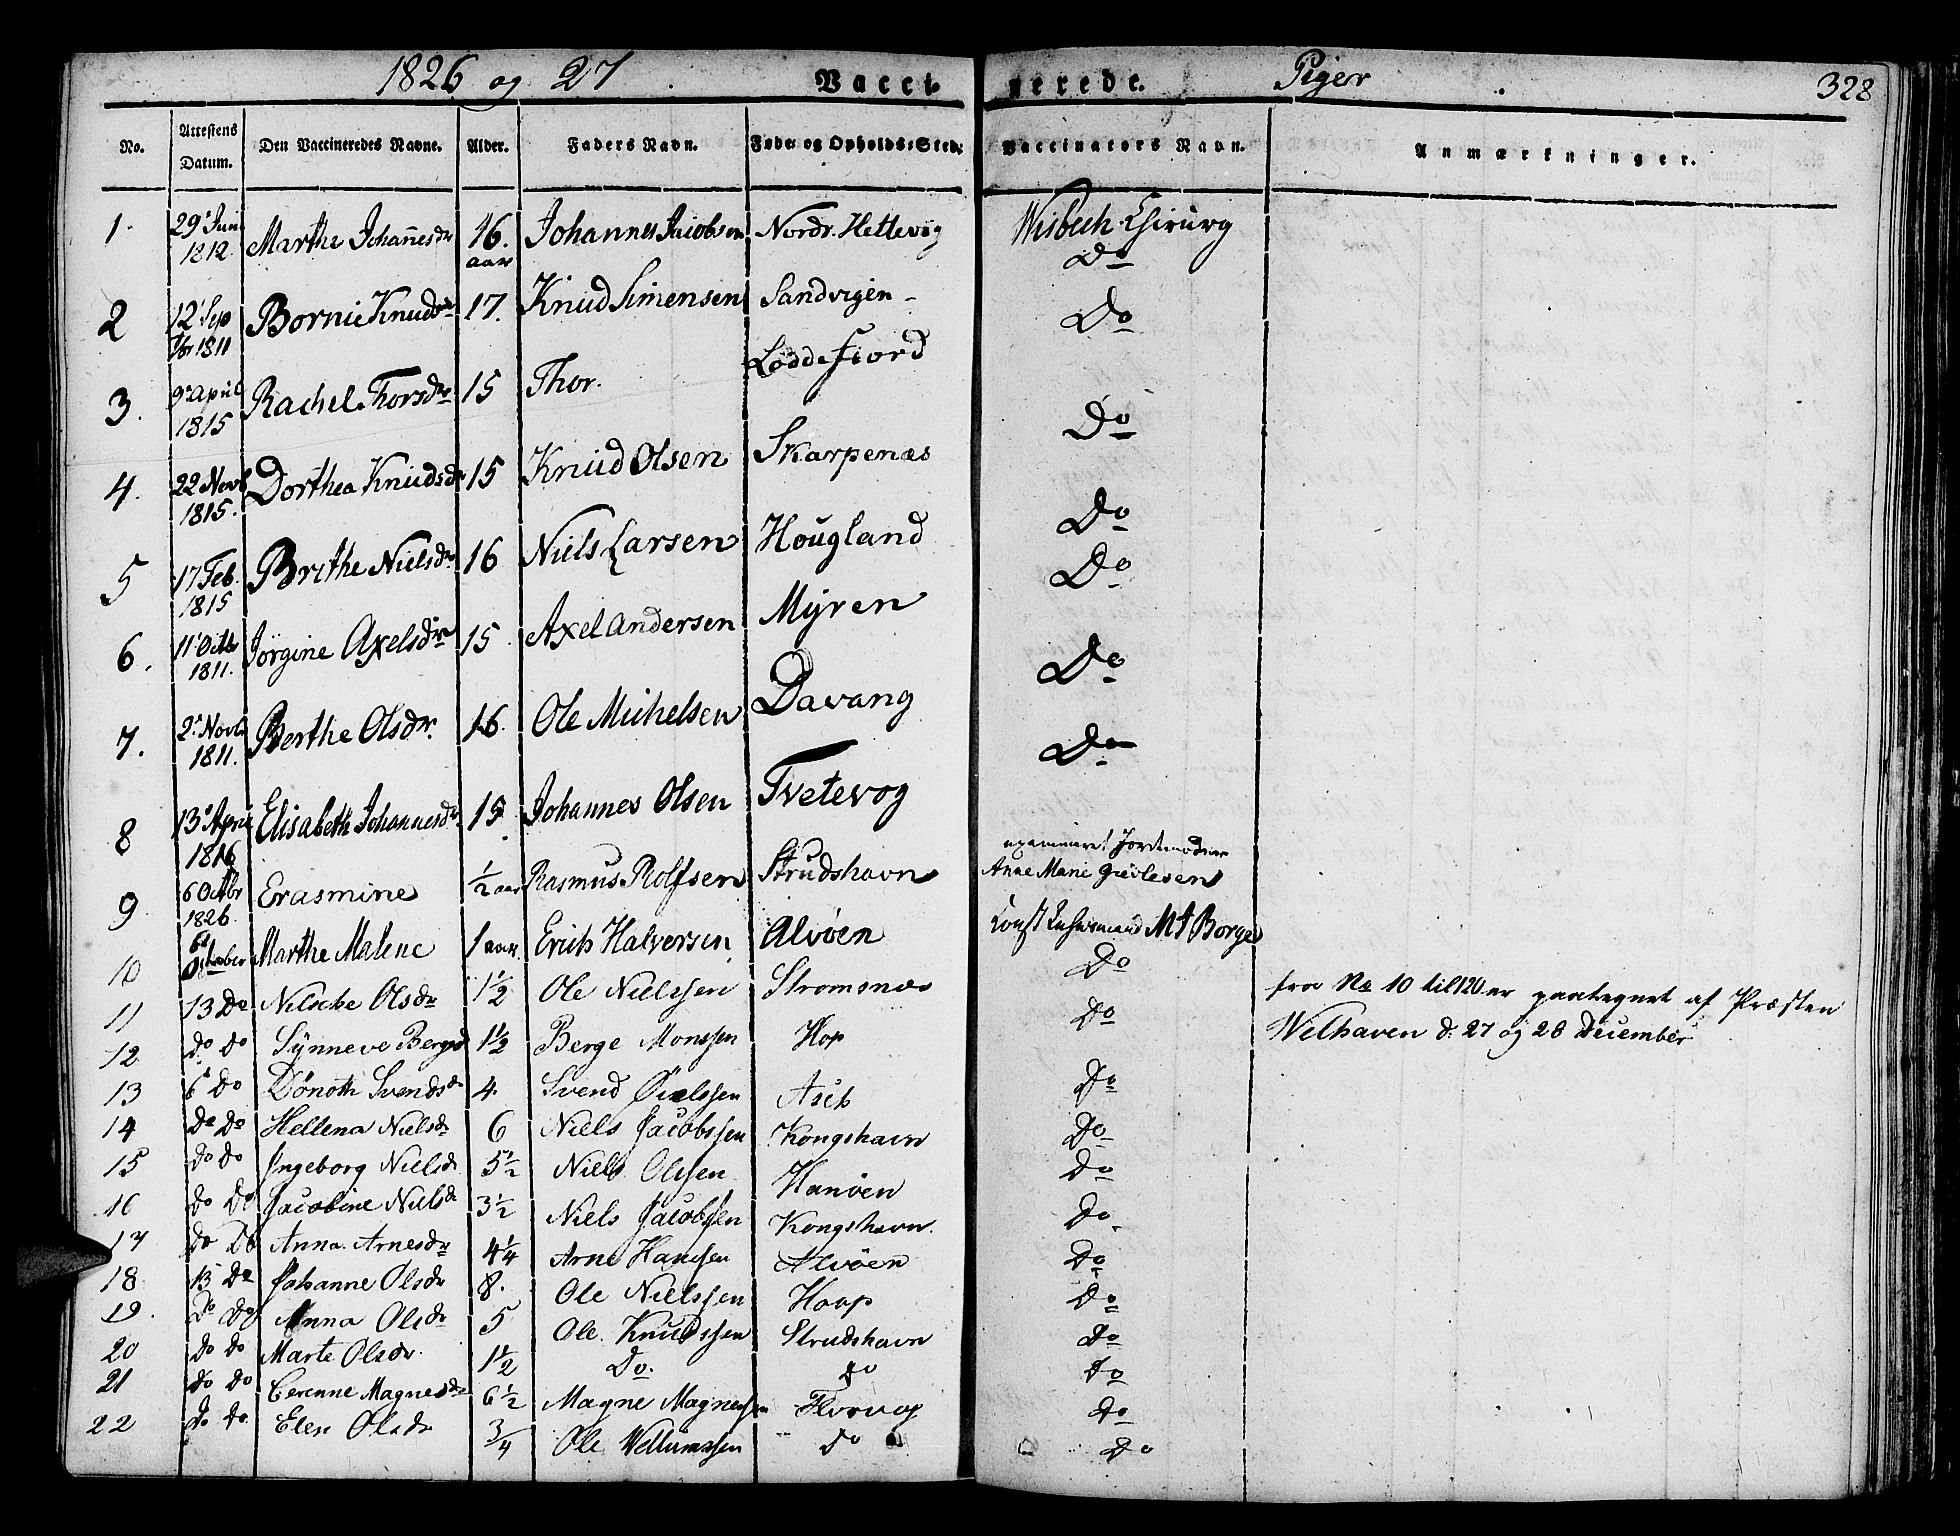 1826 og 27 Vacci- nerede. Piger 328
No. Attestens Datum. Den Vaccineredes Navne. Alder. Faders Navn. Føde- og Opholds-Sted. Vaccinators Navn. Anmærkninger.
1. 29 Juni 1812 Marthe Johannesdr 16. aar Johannes Jacobsen Nordr. Hettevig Wisbech Chirurg
Do
2 12 Sep 7br 1811 Bornie Knudsdr 17. Knud Simensen Sandvigen Do
3. 9 April 1815 Rachel Thorsdr 15 Thor. Loddefiord Do
4. 22 Novb 1815. Dorthea Knudsdr 15 Knud Olsen Skarpenæs Do
5 17 Feb. 1815 Brithe Nielsdr 16 Niels Larsen Hougland Do
6. 11 Octb 1811. Jørgine Axelsdr 15 Axel Andersen Myren Do
7. 2 Novb 1811. Berthe Olsdr. 16 Ole Michelsen Davang Do
8 13 April 1816 Elisabeth Johannesdr 15 Johannes Olsen Tvetevog
9 6 Octbr 1826. Erasmine 1/2 aar Rasmus Rolfsen Strudshavn examineret Jordemoder Anne Marie
10 6 October Marthe Malene 1 aar. Erich Halversen Alvøen Const Lehnsmand Mt Borge
11 13 Do Nilsche Olsdr 1 1/2 Ole Nielssen Stromsnæs Do fra No 10 til 120 er paategnet af Præsten
12 do do Synneve Bergsd 1 1/2 Berge Monssen Hop Do Welhaven d. 27 og 28 December
13 6 Do Dönoth Svendsdr 4. Svend Do
14 Do Do Hellena Nielsdr 6 Niels Jacobssen Kongshavn Do
15 do do Ingeborg Nielsdr 5 1/2 Niels Olssen Hanöen Do
16 do do Jacobine Nielsdr 3 1/2 Niels Jacobssen Kongshavn. Do
17 do Do Anna Arnesdr 4 1/4 Arne Hanssen Alvöen Do
18 13 Do Johanne Olsdr 8. Ole Nielssen Haap Do
19. Do do Anna Olsdr 5 Ole Knudssen Strudshavn Do
20 do do Marte Olsdr. 1 1/2 Do. do Do
21 do do Cerenne Magnesdr 6 1/2 Magne Magnessen Florvog Do
22 do do Elen Olsdr 3/4 Ole Vellumssen do Do